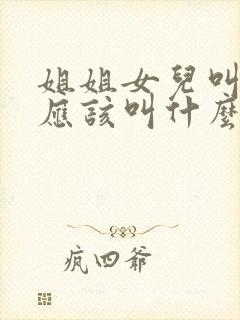 姐姐女兒叫
應該叫什麼
疯四爷